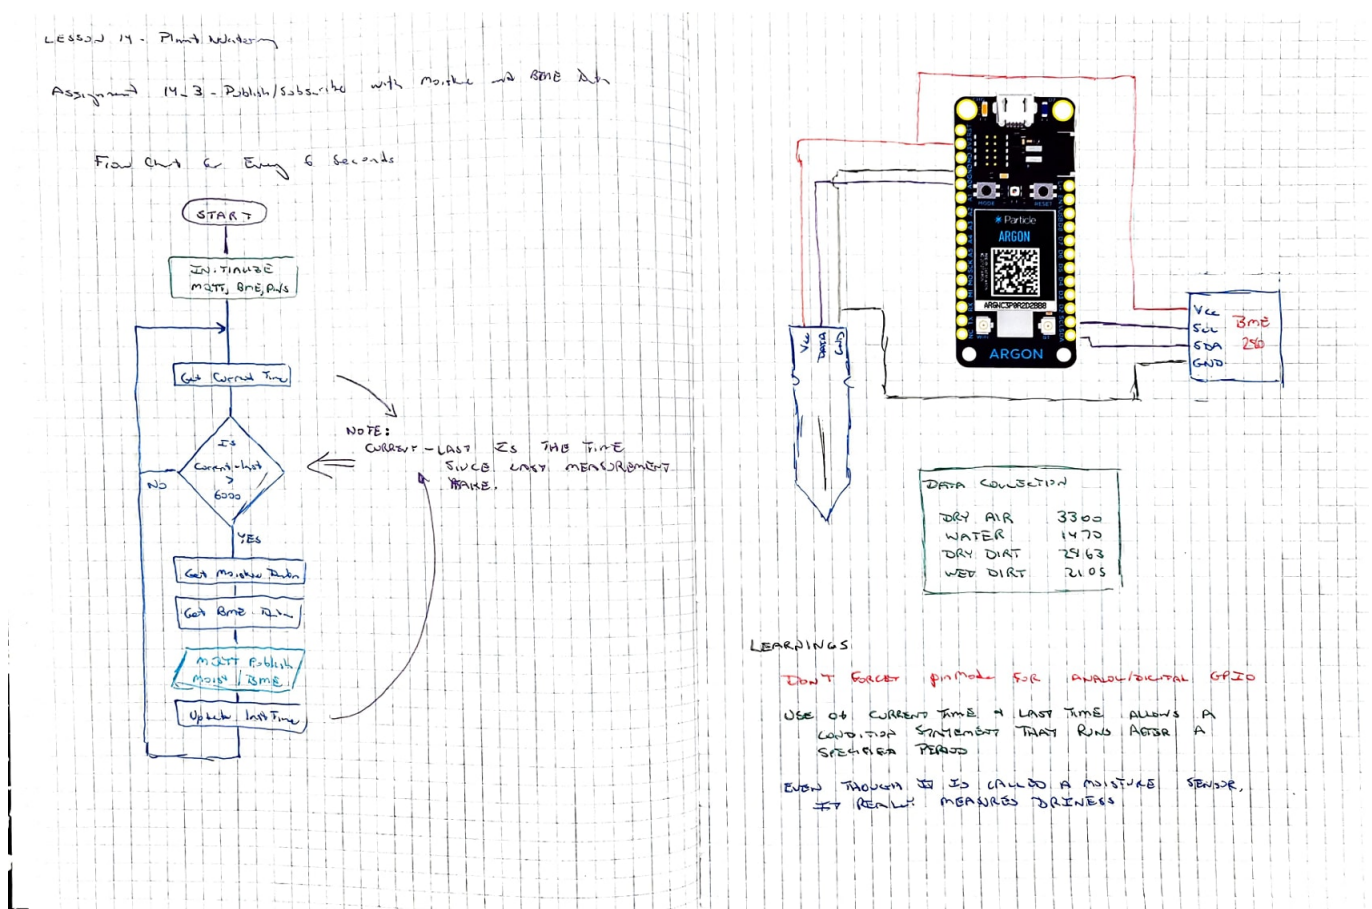 LESSON 14 - Plant Watering
Assignment 14_3 - Publish/Subscribe with Moisture and BME Data
Flow Chart for Every 6 Seconds
START
INITIALIZE
MQTT, BME, PINS
Get Current Time
IS
Current-last
>
6000
NO
YES
Get Moisture Data
Get BME Data
MQTT Publish
Moist / BME
Update lastTime
NOTE:
CURRENT-LAST IS THE TIME
SINCE LAST MEASUREMENT
TAKE.
MODE
RESET
Particle
ARGON
ARGNC3P0R2D2BB8
ARGON
Vcc
DATA
GND
Vcc
SCL
SDA
GND
BME
280
DATA COLLECTION
DRY AIR 3300
WATER 1470
DRY DIRT 2863
WET DIRT 2105
LEARNINGS
DON'T FORGET pinMode FOR ANALOG/DIGITAL GPIO
USE OF CURRENT TIME & LAST TIME ALLOWS A
CONDITION STATEMENT THAT RUNS AFTER A
SPECIFIED PERIOD
EVEN THOUGH IT IS CALLED A MOISTURE SENSOR,
IT REALLY MEASURES DRINESS